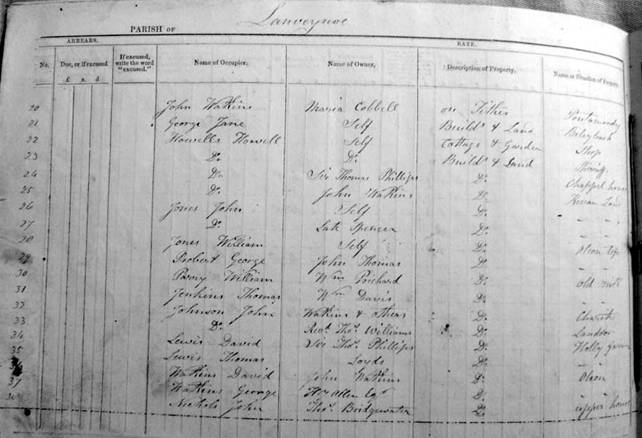 PARISH OF Lanveynoe
ARREARS. RATE.
No. Due, or if excused If excused, write the word "excused." Name of Occupier. Name of Owner. Description of Property. Name or Situation of Property
£ s. d.
20 John Watkins Maria Cobbell on Tithes
21 George Jane Self Build.s & Land
22 Howells Howell Self Cottage & Garden Shop
23 Do. Do. Build.s & Land
24 Do. Sir Thomas Phillips Do. Chappel house
25 Do. John Watkins Do.
26 Jones John Self Do. " "
27 Do. Late Spencer Do. " "
28 Jones William Self Do. Olcon top
29 Probert George John Thomas Do. " "
30 Parry William Wm Prichard Do. old
31 Jenkins Thomas Wm Davis Do. " "
32 Johnson John Watkins & others Do. Church
33 Do. Revd. Thos. Williams Do.
34 Lewis David Sir Thos. Phillips Do. Holly
35 Lewis Thomas Loyds Do. " "
36 Watkins David John Watkins Do. Olcon
37 Watkins George Allen Esqr Do. " "
38 Nichols John Thos. Bridgewater Do. upper house